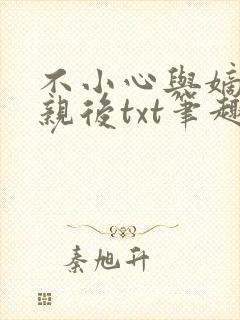 不小心與嫡
親後txt筆趣
秦旭升